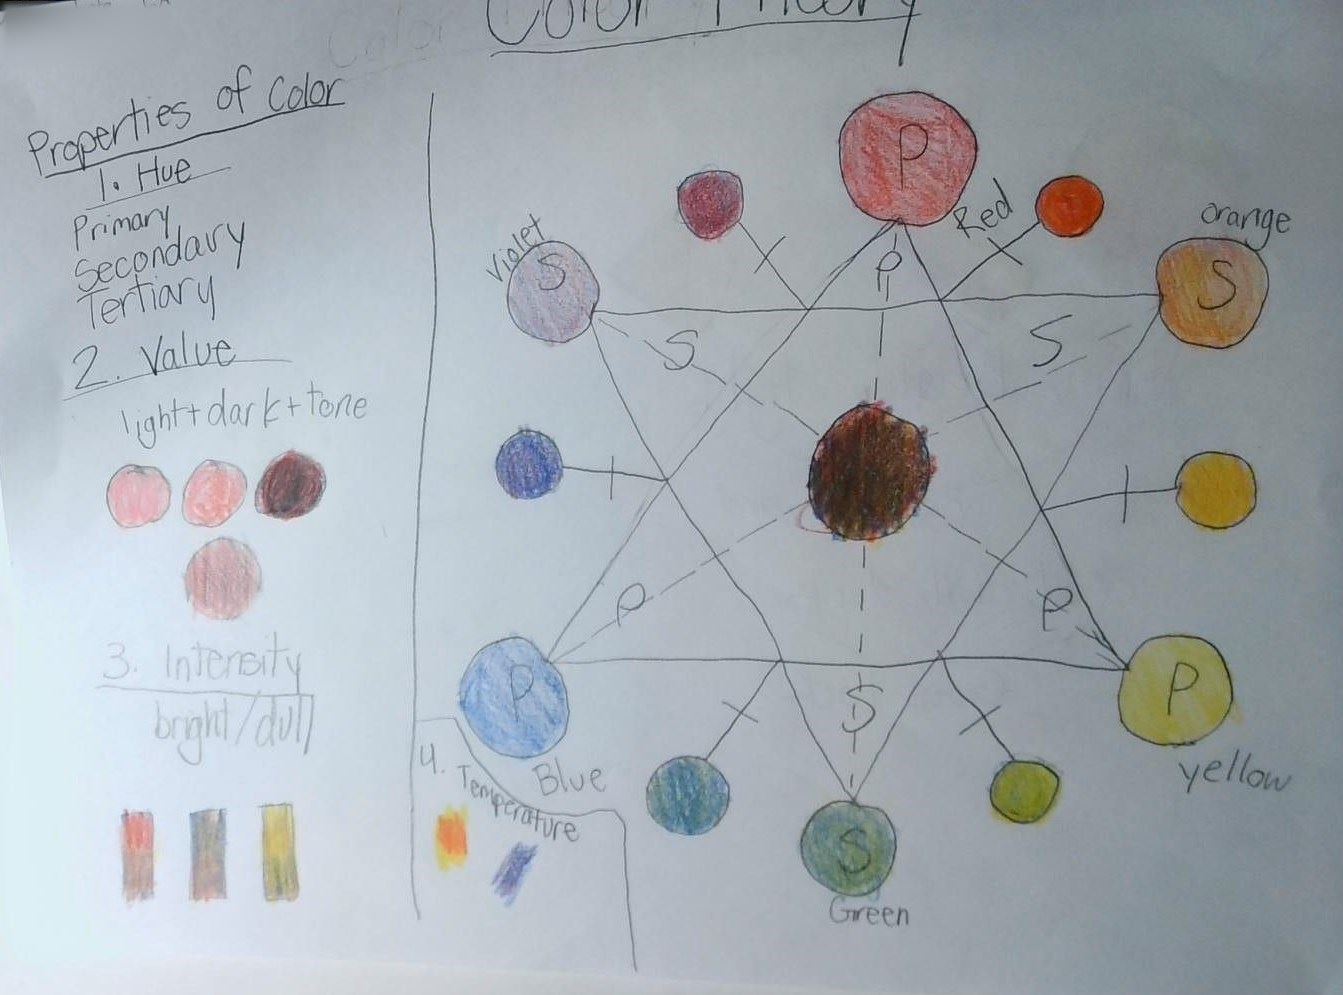 Color Theory
Properties of Color
1. Hue
Primary
Secondary
Tertiary
2. Value
light+dark+tone
3. Intensity
bright/dull
4. Temperature
P
Red
orange
S
Violet
S
P
S
S
P
P
P
Blue
P
yellow
S
S
Green